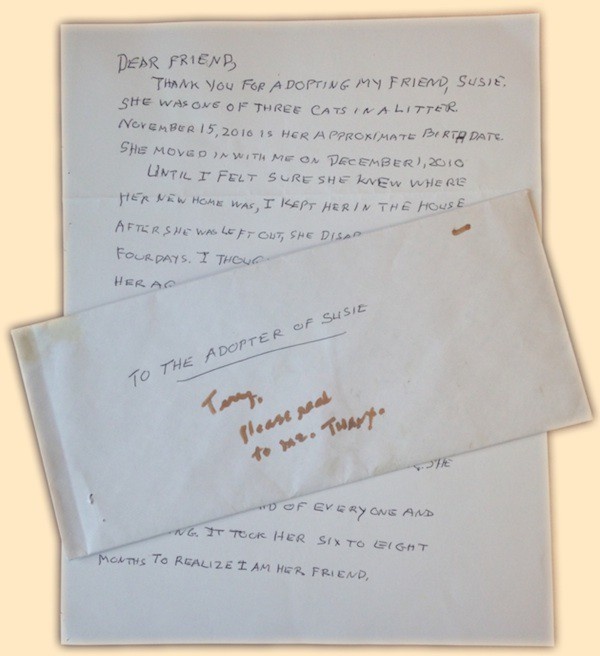 DEAR FRIEND,
THANK YOU FOR ADOPTING MY FRIEND, SUSIE.
SHE WAS ONE OF THREE CATS IN A LITTER.
NOVEMBER 15, 2010 IS HER APPROXIMATE BIRTH DATE.
SHE MOVED IN WITH ME ON DECEMBER 1, 2010
UNTIL I FELT SURE SHE KNEW WHERE
HER NEW HOME WAS, I KEPT HER IN THE HOUSE
AFTER SHE WAS LEFT OUT, SHE DISAP
FOUR DAYS. I THOUG
HER
TO THE ADOPTER OF SUSIE
Please read
to me. Thanx.
SHE
D OF EVERYONE AND
NG. IT TOOK HER SIX TO EIGHT
MONTHS TO REALIZE I AM HER FRIEND.